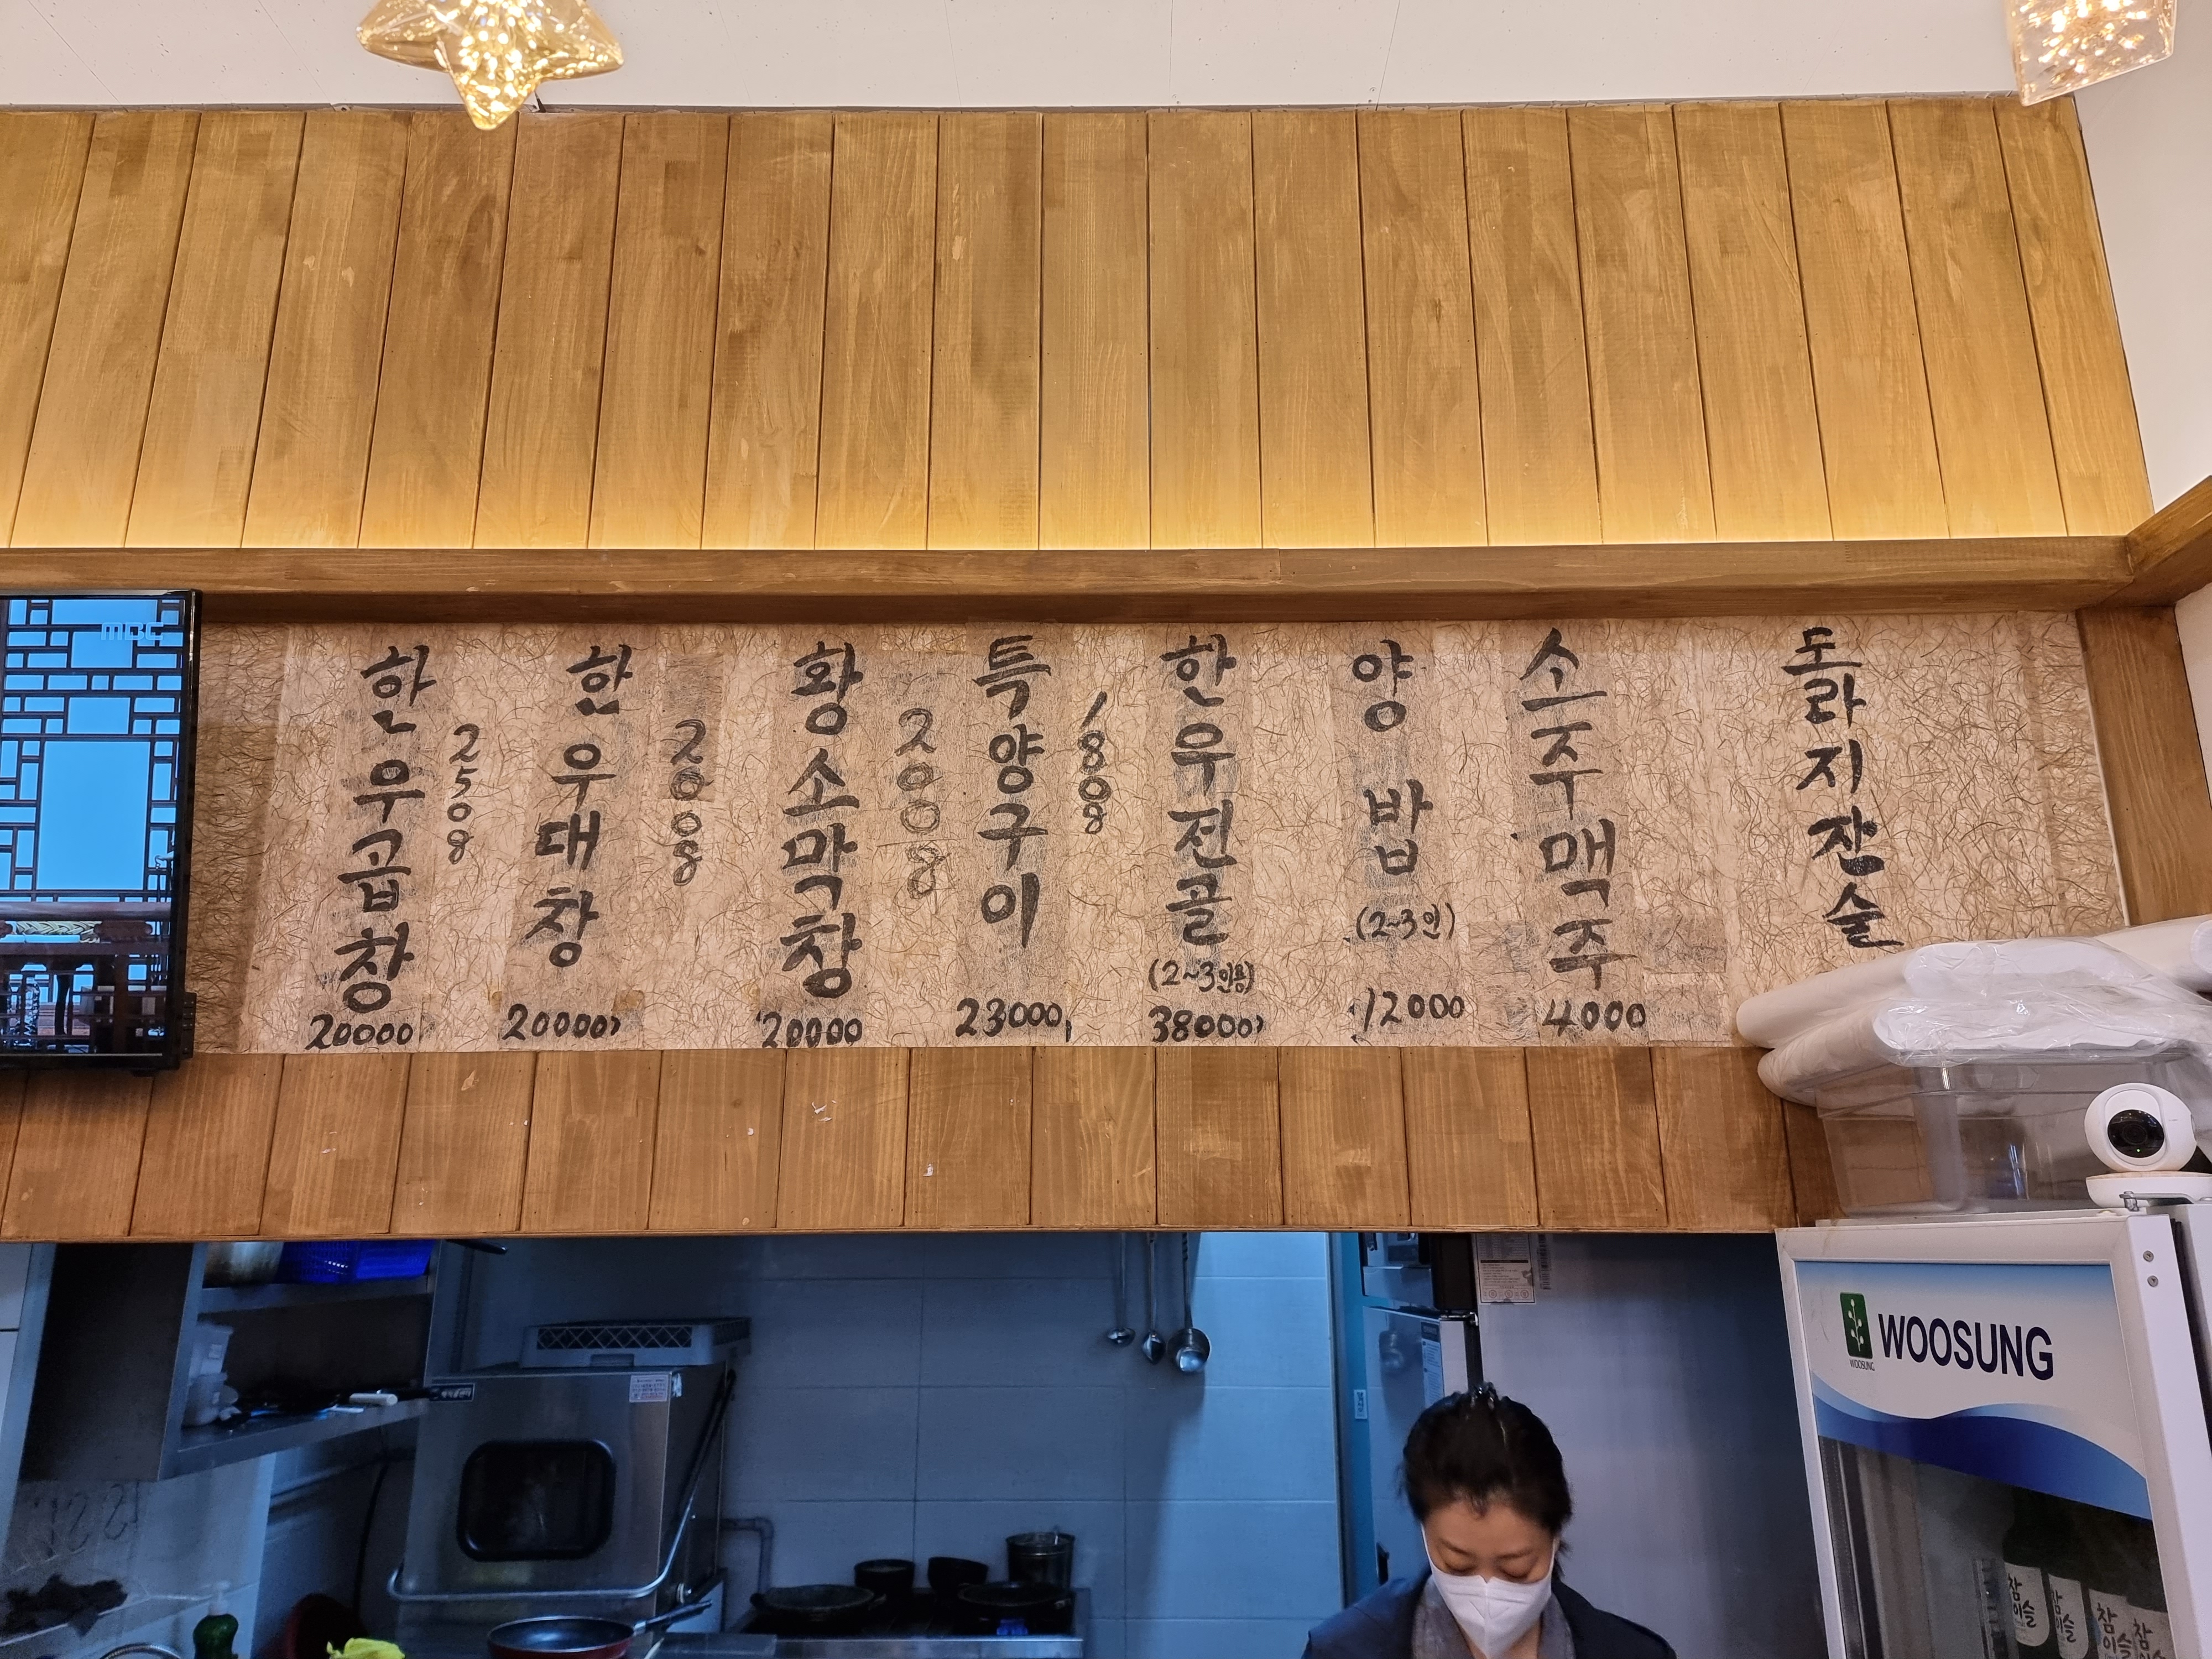 MBC
한우곱창
250g
20000
한우대창
200g
20000
황소막창
200g
20000
특양구이
180g
23000
한우전골
(2~3인용)
38000
양밥
(2~3인)
12000
소주맥주
4000
도라지잔술
WOOSUNG
WOOSUNG
참이슬
참이슬
참이슬
참이슬